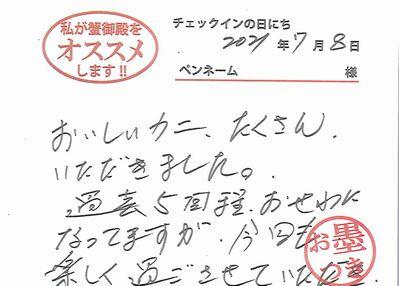 私が蟹御殿を
オススメ
します!!
チェックインの日にち
2021年7月8日
ペンネーム 様
おいしいカニ、たくさん、
いただきました。
過去5回程、おせわに
なってますが、今回も
楽しく過ごさせていただき
お墨
つき